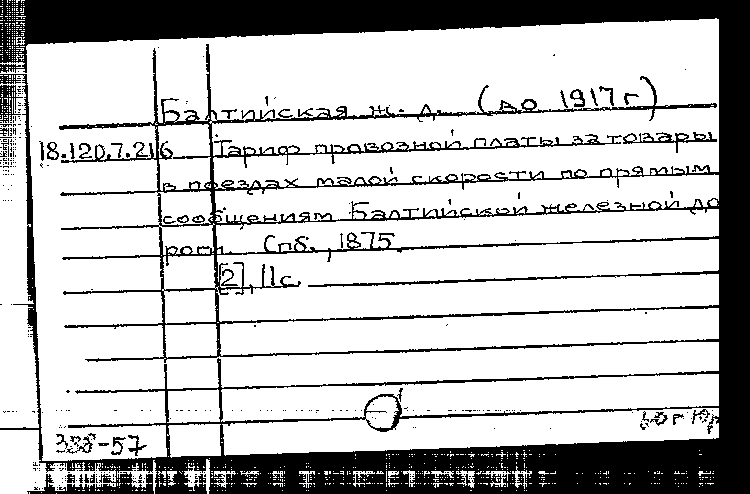 Балтийская ж. д. (до 1917 г)
18.120.7.216 Тариф провозной платы за товары
в поездах малой скорости по прямым
сообщениям Балтийской железной до
роги. Спб., 1875.
[2], 11 с.
388-57